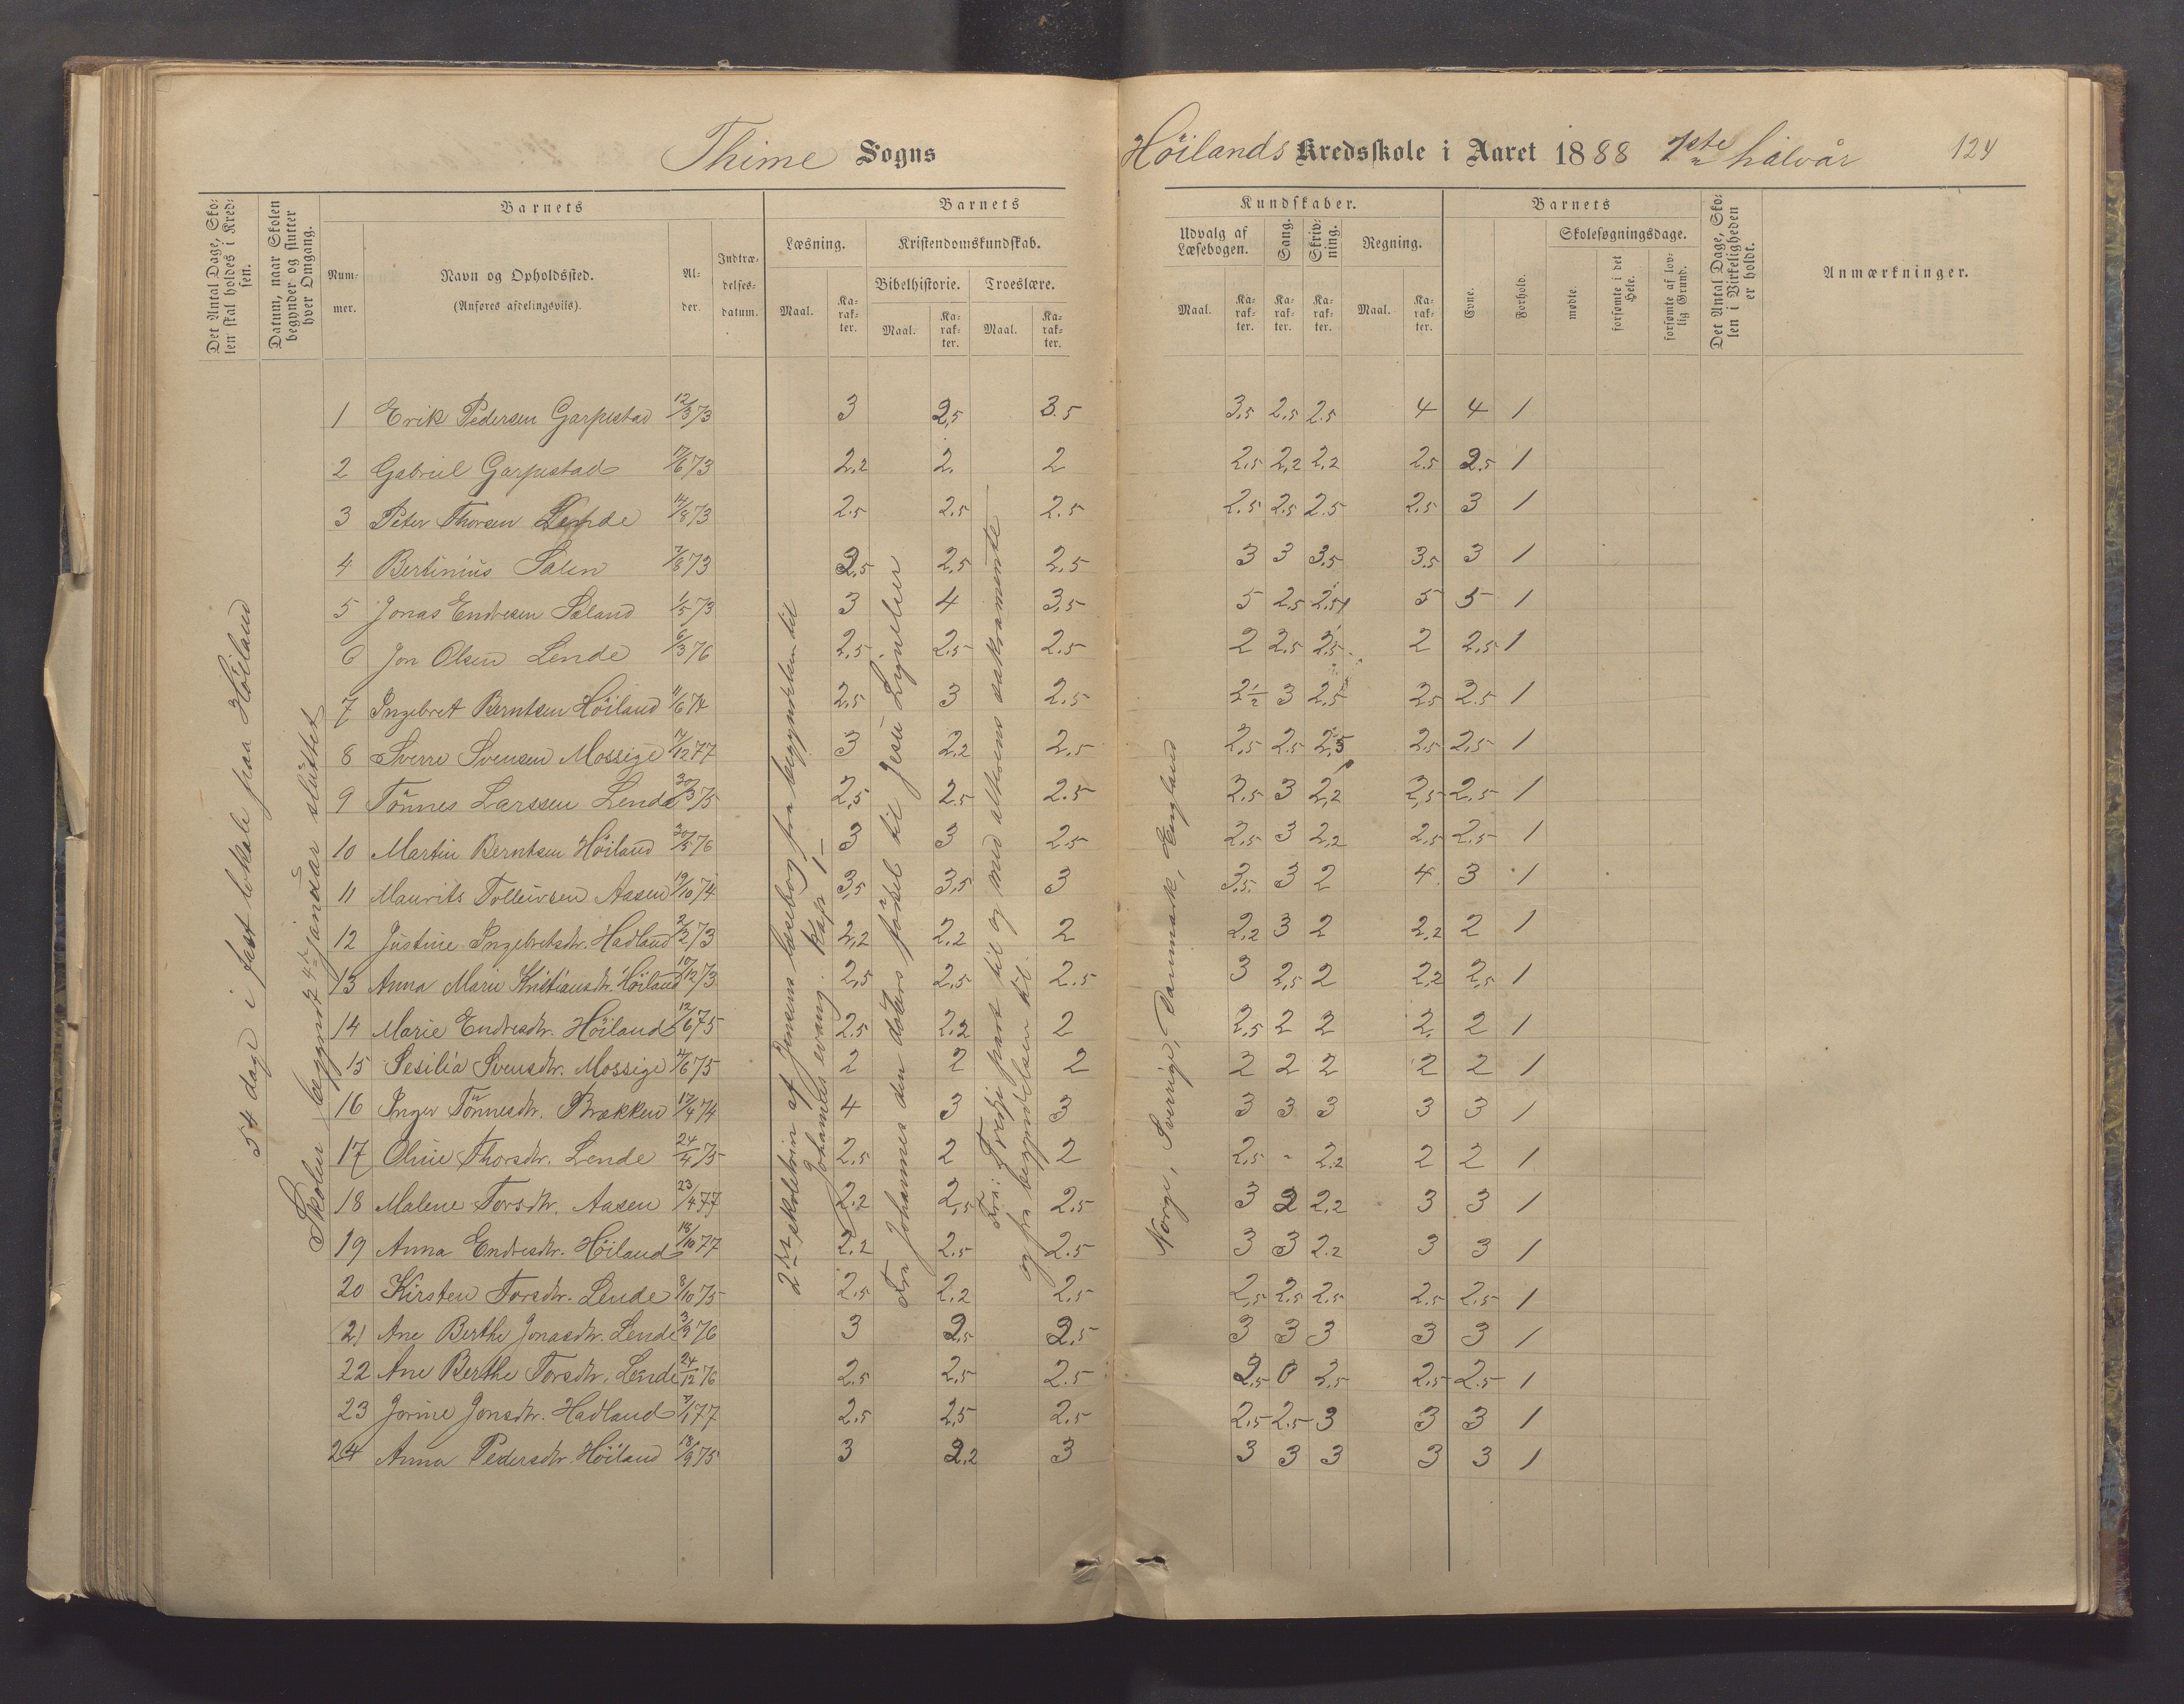 Thime Sogns Höilands Kredsskole i Aaret 1888 1ste halvår 124
Det Antal Dage, Skolen skal holdes i Kredsen.
Datum, naar Skolen begynder og slutter hver Omgang.
Barnets
Nummer.
Navn og Opholdssted.
(Anføres afdelingsvis).
Alder.
Indtrædelsesdatum.
Barnets Kundskaber.
Læsning.
Maal.
Karakter.
Kristendomskundskab.
Bibelhistorie.
Maal.
Karakter.
Troeslære.
Maal.
Karakter.
Udvalg af Læsebogen.
Maal.
Karakter.
Sang.
Karakter.
Skrivning.
Karakter.
Regning.
Maal.
Karakter.
Barnets
Evne.
Forhold.
Skolesøgningsdage.
mødte.
forsømte i det Hele.
forsømte af lovlig Grund.
Det Antal Dage, Skolen i Virkeligheden er holdt.
Anmærkninger.
54 dage i fast lokale paa Höiland
Skolen begyndt 4de januar sluttet
2det skoletrin af Jensens læsebog fra begyndelsen til
Johannes evang. kap 1
Fra Johannes den döbers födsel til Jesu Lignelser
Fra: Tredje part til og med alterens sakramente
og fra begyndelsen til.
Norge, Sverrige, Danmark, England
1 Erik Pedersen Garpestad 12/3 73 3 2,5 3.5 3,5 2,5 2.5 4 4 1
2 Gabriel Garpestad 17/6 73 2,2 2. 2 2,5 2,2 2,2 2.5 2.5 1
3 Peter Thorsen Lende 14/8 73 2.5 2.5 2.5 2.5 2.5 2.5 2.5 3 1
4 Bertinius Salen 7/8 73 2,5 2,5 2.5 3 3 3,5 3.5 3 1
5 Jonas Endresen Søland 1/5 73 3 4 3,5 5 2,5 2,5 5 5 1
6 Jon Olsen Lende 6/3 76 2,5 2.5 2.5 2 2.5 2,5 2 2,5 1
7 Ingebret Berntsen Höiland 11/6 74 2,5 3 2.5 2½ 3 2,5 2.5 2.5 1
8 Sverre Svensen Mossige 17/12 77 3 2,2 2.5 2,5 2.5 2,5 2.5 2,5 1
9 Tönnes Larssen Lende 30/3 75 2,5 2.5 2.5 2.5 3 2,2 2,5 2.5 1
10 Martin Berntsen Höiland 30/5 76 3 3 2.5 2,5 3 2,2 2,5 2,5 1
11 Maurits Tolleivsen Aasen 19/10 74 3,5 3,5 3 3,5. 3 2 4 3 1
12 Justine Ingebretsdtr. Hadland 2/2 73 2,2 2,2 2 2,2 3 2 2,2 2 1
13 Anna Marie Kristiansdtr. Höiland 10/12 73 2,5 2,5 2.5 3 2,5 2 2,2 2,5 1
14 Marie Endresdtr. Höiland 12/6 75 2.5 2.2 2 2,5 2 2 2. 2 1
15 Sesilia Svensdtr. Mossige 4/6 75 2 2 2 2 2 2 2 2 1
16 Inger Tönnesdtr. Brækken 12/4 74 4 3 3 3 3 3 3 3 1
17 Oline Thorsdtr. Lende 24/4 75 2.5 2 2 2,5 - 2.2 2 2 1
18 Malene Torsdtr. Aasen 23/4 77 2.2 2,5 2.5 3 2 2,2 3 3 1
19 Anna Endresdtr. Höiland 18/10 77 2.2 2.5 2.5 3 3 2.2 3 3 1
20 Kirsten Torsdtr. Lende 8/10 75 2.5 2,2 2.5 2,5 2.5 2.5 2.5 2.5 1
21 Ane Berthe Jonasdtr. Lende 3/9 76 3 2,5 2.5 3 3 3 3 3 1
22 Ane Berthe Torsdtr. Lende 24/12 76 2.5 2,5 2.5 2,5 0 2,5 2.5 2.5 1
23 Jorine Jonsdtr. Hadland 77 2.5 2,5 2.5 2.5 2.5 3 3 3 1
24 Anna Pedersdtr. Höiland 18/9 75 3 2.2 3 3 3 3 3 3 1